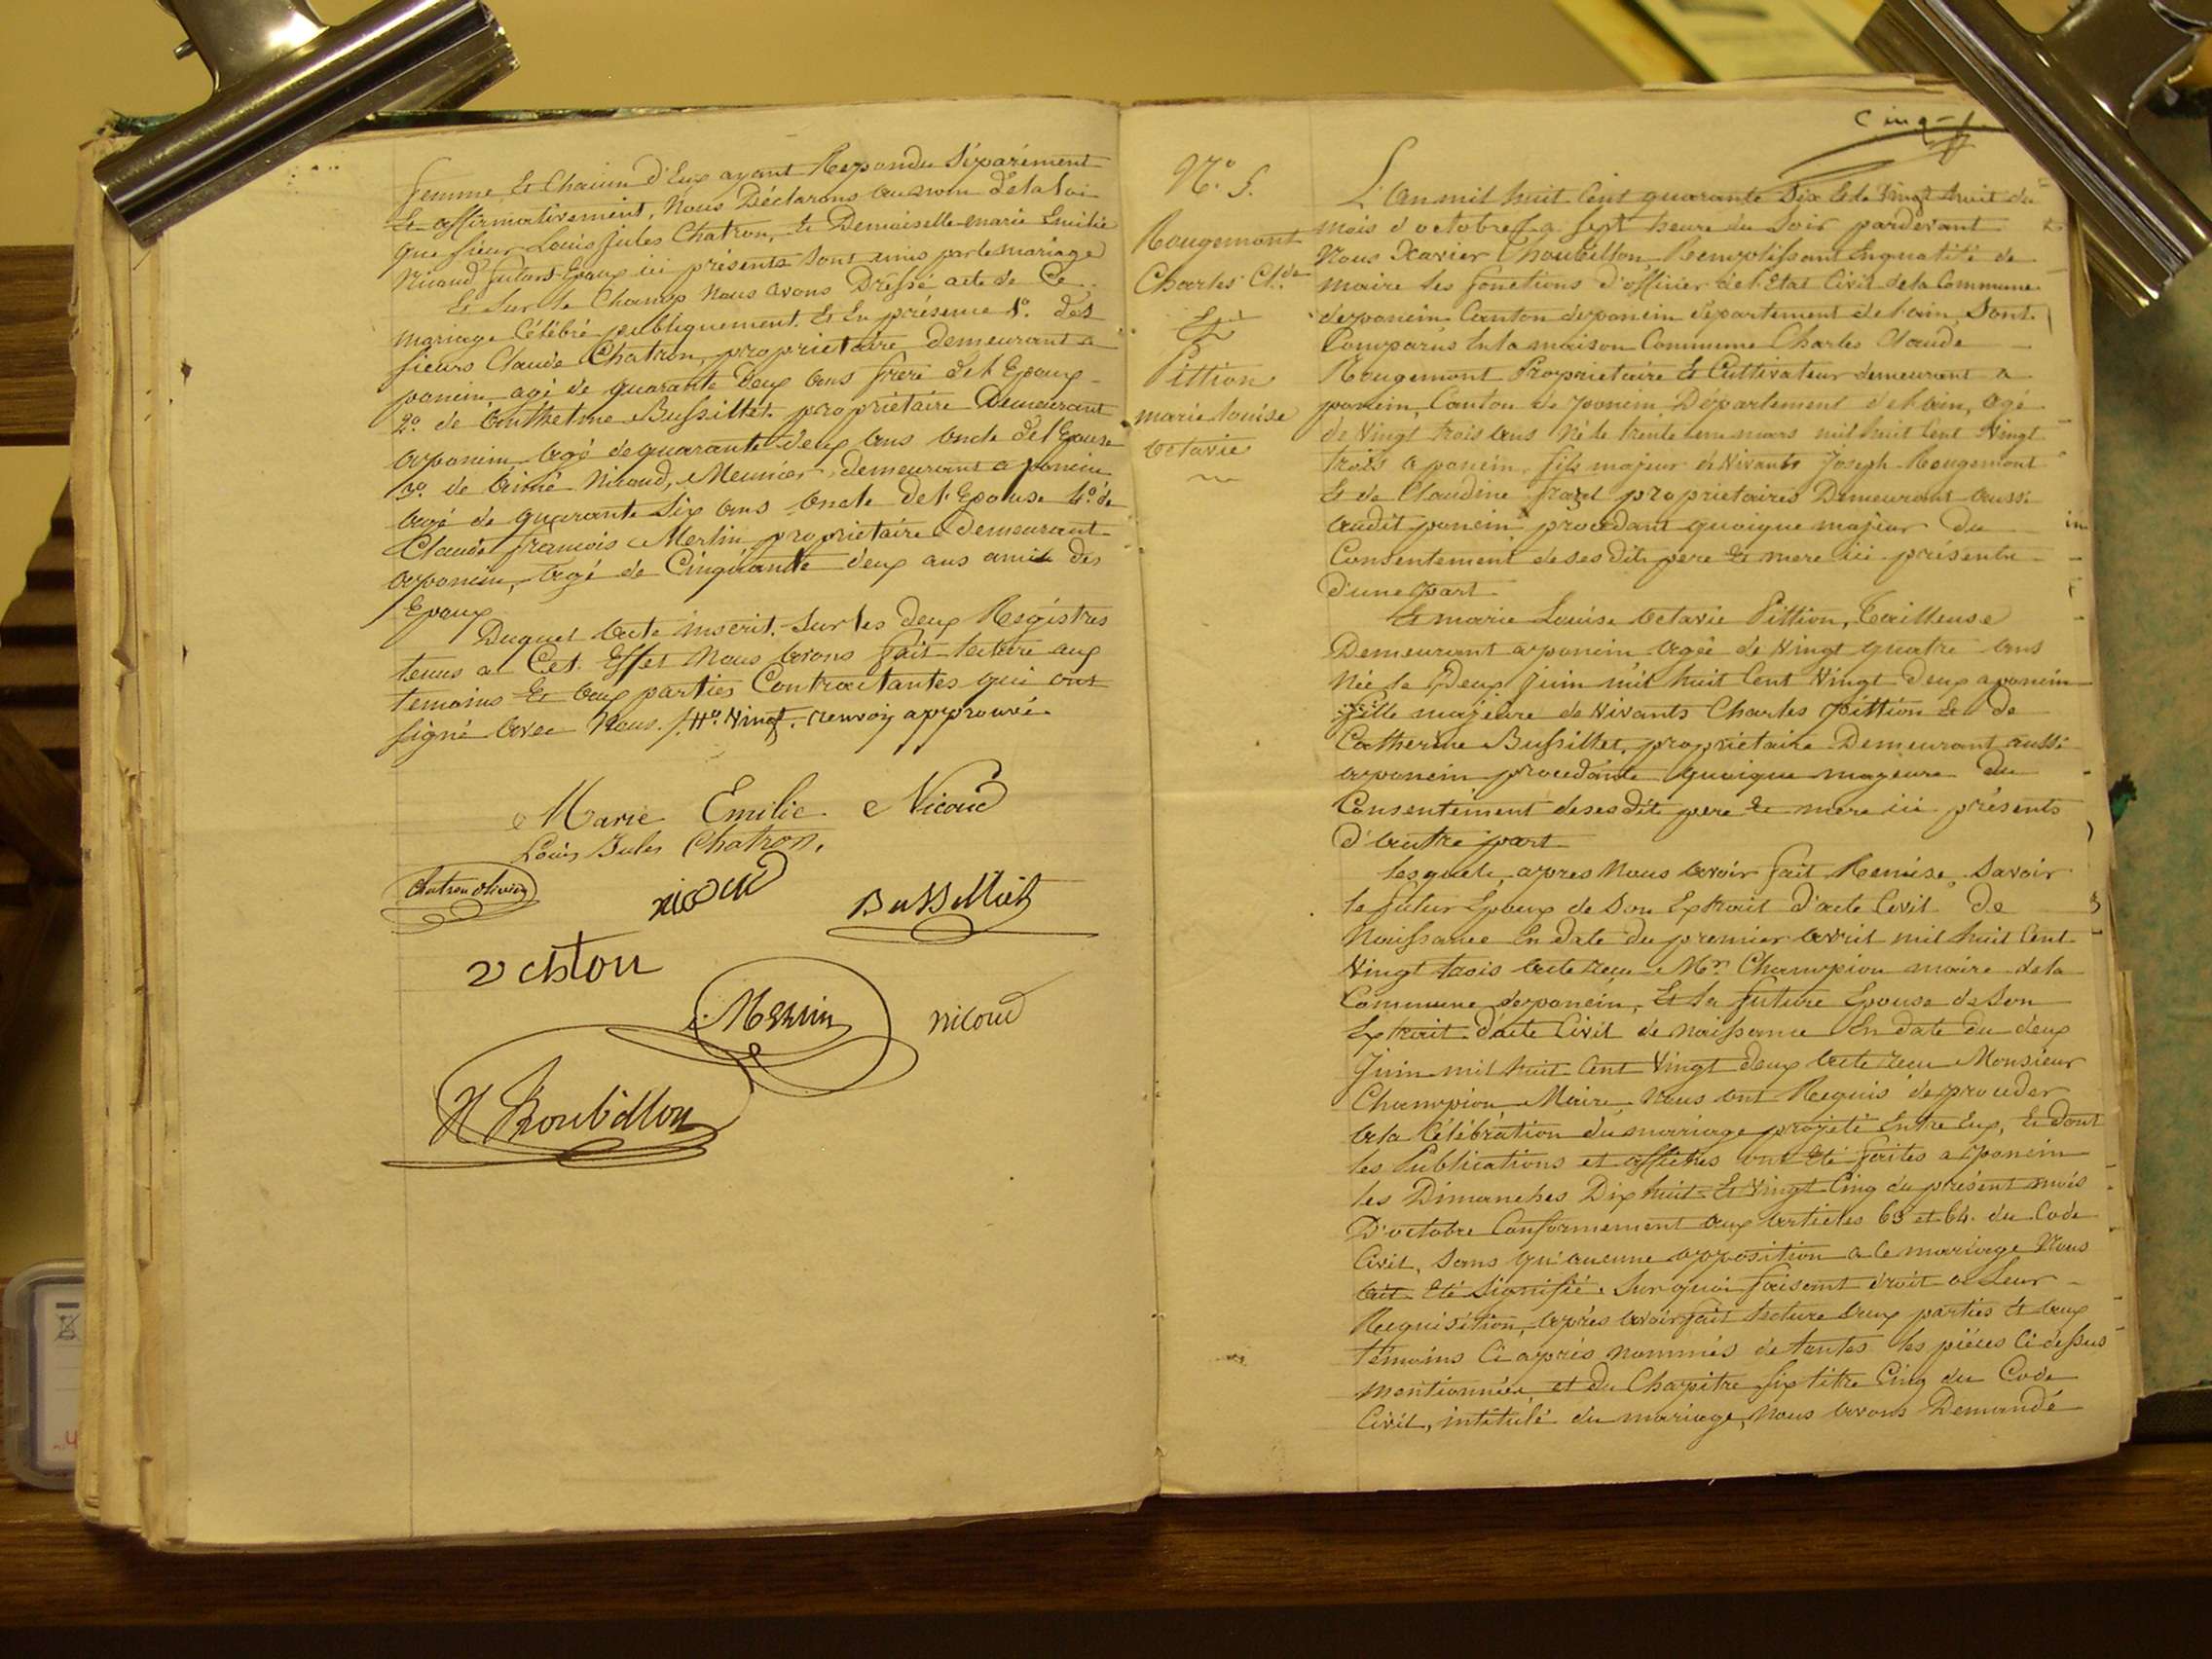 femme, Et Chacun d'Eux ayant Repondu Séparément
Et affirmativement, Nous Déclarons au nom de la loi
que sieur Louis Jules Chatron, Et Demoiselle Marie Emilie
Nicoud futurs Epoux ici présents sont unis par le mariage
Et sur le Champ Nous avons Dressé acte de Ce
mariage Célébré publiquement Et En présence 1º. des
sieurs Claude Chatron, proprietaire demeurant a
poncin agé de quarante deux ans frere de l'Epoux
2º. de Anthelme Bussillet propriétaire Demeurant
a poncin agé de quarante deux ans oncle de l'Epouse
3º. de Aimé Nicoud, Meunier demeurant a poncin
agé de quarante six ans oncle de l'Epouse 4º. de
Claude françois Merlin proprietaire Demeurant
a poncin, agé de Cinquante deux ans ami des
Epoux
Duquel acte inscrit sur les deux Registres
tenus a Cet Effet Nous avons fait lecture aux
temoins Et aux parties Contractantes qui ont
signé avec Nous. renvoi approuvé
Marie Emilie Nicoud
Louis Jules Chatron,
Chatron olivier
nicoud
Bussilliet
Merlin
nicoud
X Choubillon
Cinq
Nº. 5.
Rougemont
Charles Cl.de
Et
Pittion
marie louise
octavie
L'an mil huit Cent quarante Six Et le Vingt huit du
mois d'octobre a sept heure du Soir pardevant
Nous Xavier Choubillon Remplissant En qualité de
maire les fonctions d'officier de l'Etat Civil de la Commune
de poncin Canton de poncin département de l'ain, Sont
Comparus En la maison Commune Charles Claude
Rougemont Proprietaire Et Cultivateur demeurant a
poncin, Canton de poncin Département de l'ain, agé
de Vingt trois ans Né le trente un mars mil huit Cent Vingt
trois a poncin, fils majeur de Vivants Joseph Rougemont
Et de Claudine proprietaires Demeurant aussi
audit poncin procédant quoique majeur du
Consentement de ses dits pere Et mere ici présents
D'une part
Et marie Louise octavie Pittion, Tailleuse
Demeurant a poncin agée de Vingt quatre ans
Née le Deux Juin mil huit Cent Vingt deux a poncin
fille majeure de Vivants Charles Pittion Et de
Catherine Bussillet, propriétaire Demeurant aussi
a poncin procédante quoique majeure du
Consentement de ses dits pere Et mere ici présents
D'autre part
Lesquels, apres Nous avoir fait Remise, Savoir
le futur Epoux de Son Extrait d'acte Civil De
Naissance En date du premier avril mil huit Cent
Vingt trois acte recu Mr. Champion maire de la
Commune de poncin, Et la future Epouse de Son
Extrait d'acte Civil de naissance En date du deux
Juin mil huit Cent Vingt deux acte recu Monsieur
Champion Maire, Nous ont Requis de proceder
a la Célébration du mariage projeté Entre Eux, Et dont
les Publications et affiches ont Eté faites a poncin
les Dimanches Dix huit Et Vingt Cinq du présent mois
D'octobre Conformement aux articles 63 et 64. du Code
Civil, Sans qu'aucune opposition a Ce mariage Nous
ait Eté Signifié. Sur quoi faisant droit a Leur
Requisition, après avoir fait lecture aux parties Et aux
Témoins Ci après nommés de toutes les pièces Ci dessus
mentionnées, et du Chapitre Six titre Cinq du Code
Civil, intitulé du mariage, Nous avons Demandé